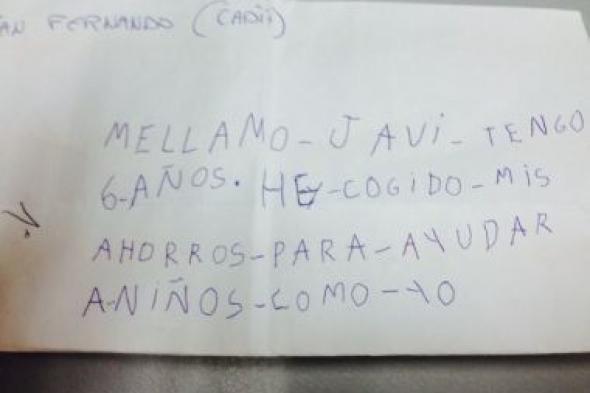 AN FERNANDO (CADIZ)
MELLAMO-JAVI-TENGO
6-AÑOS. HE-COGIDO-MIS
AHORROS-PARA-AYUDAR
A-NIÑOS-COMO-YO